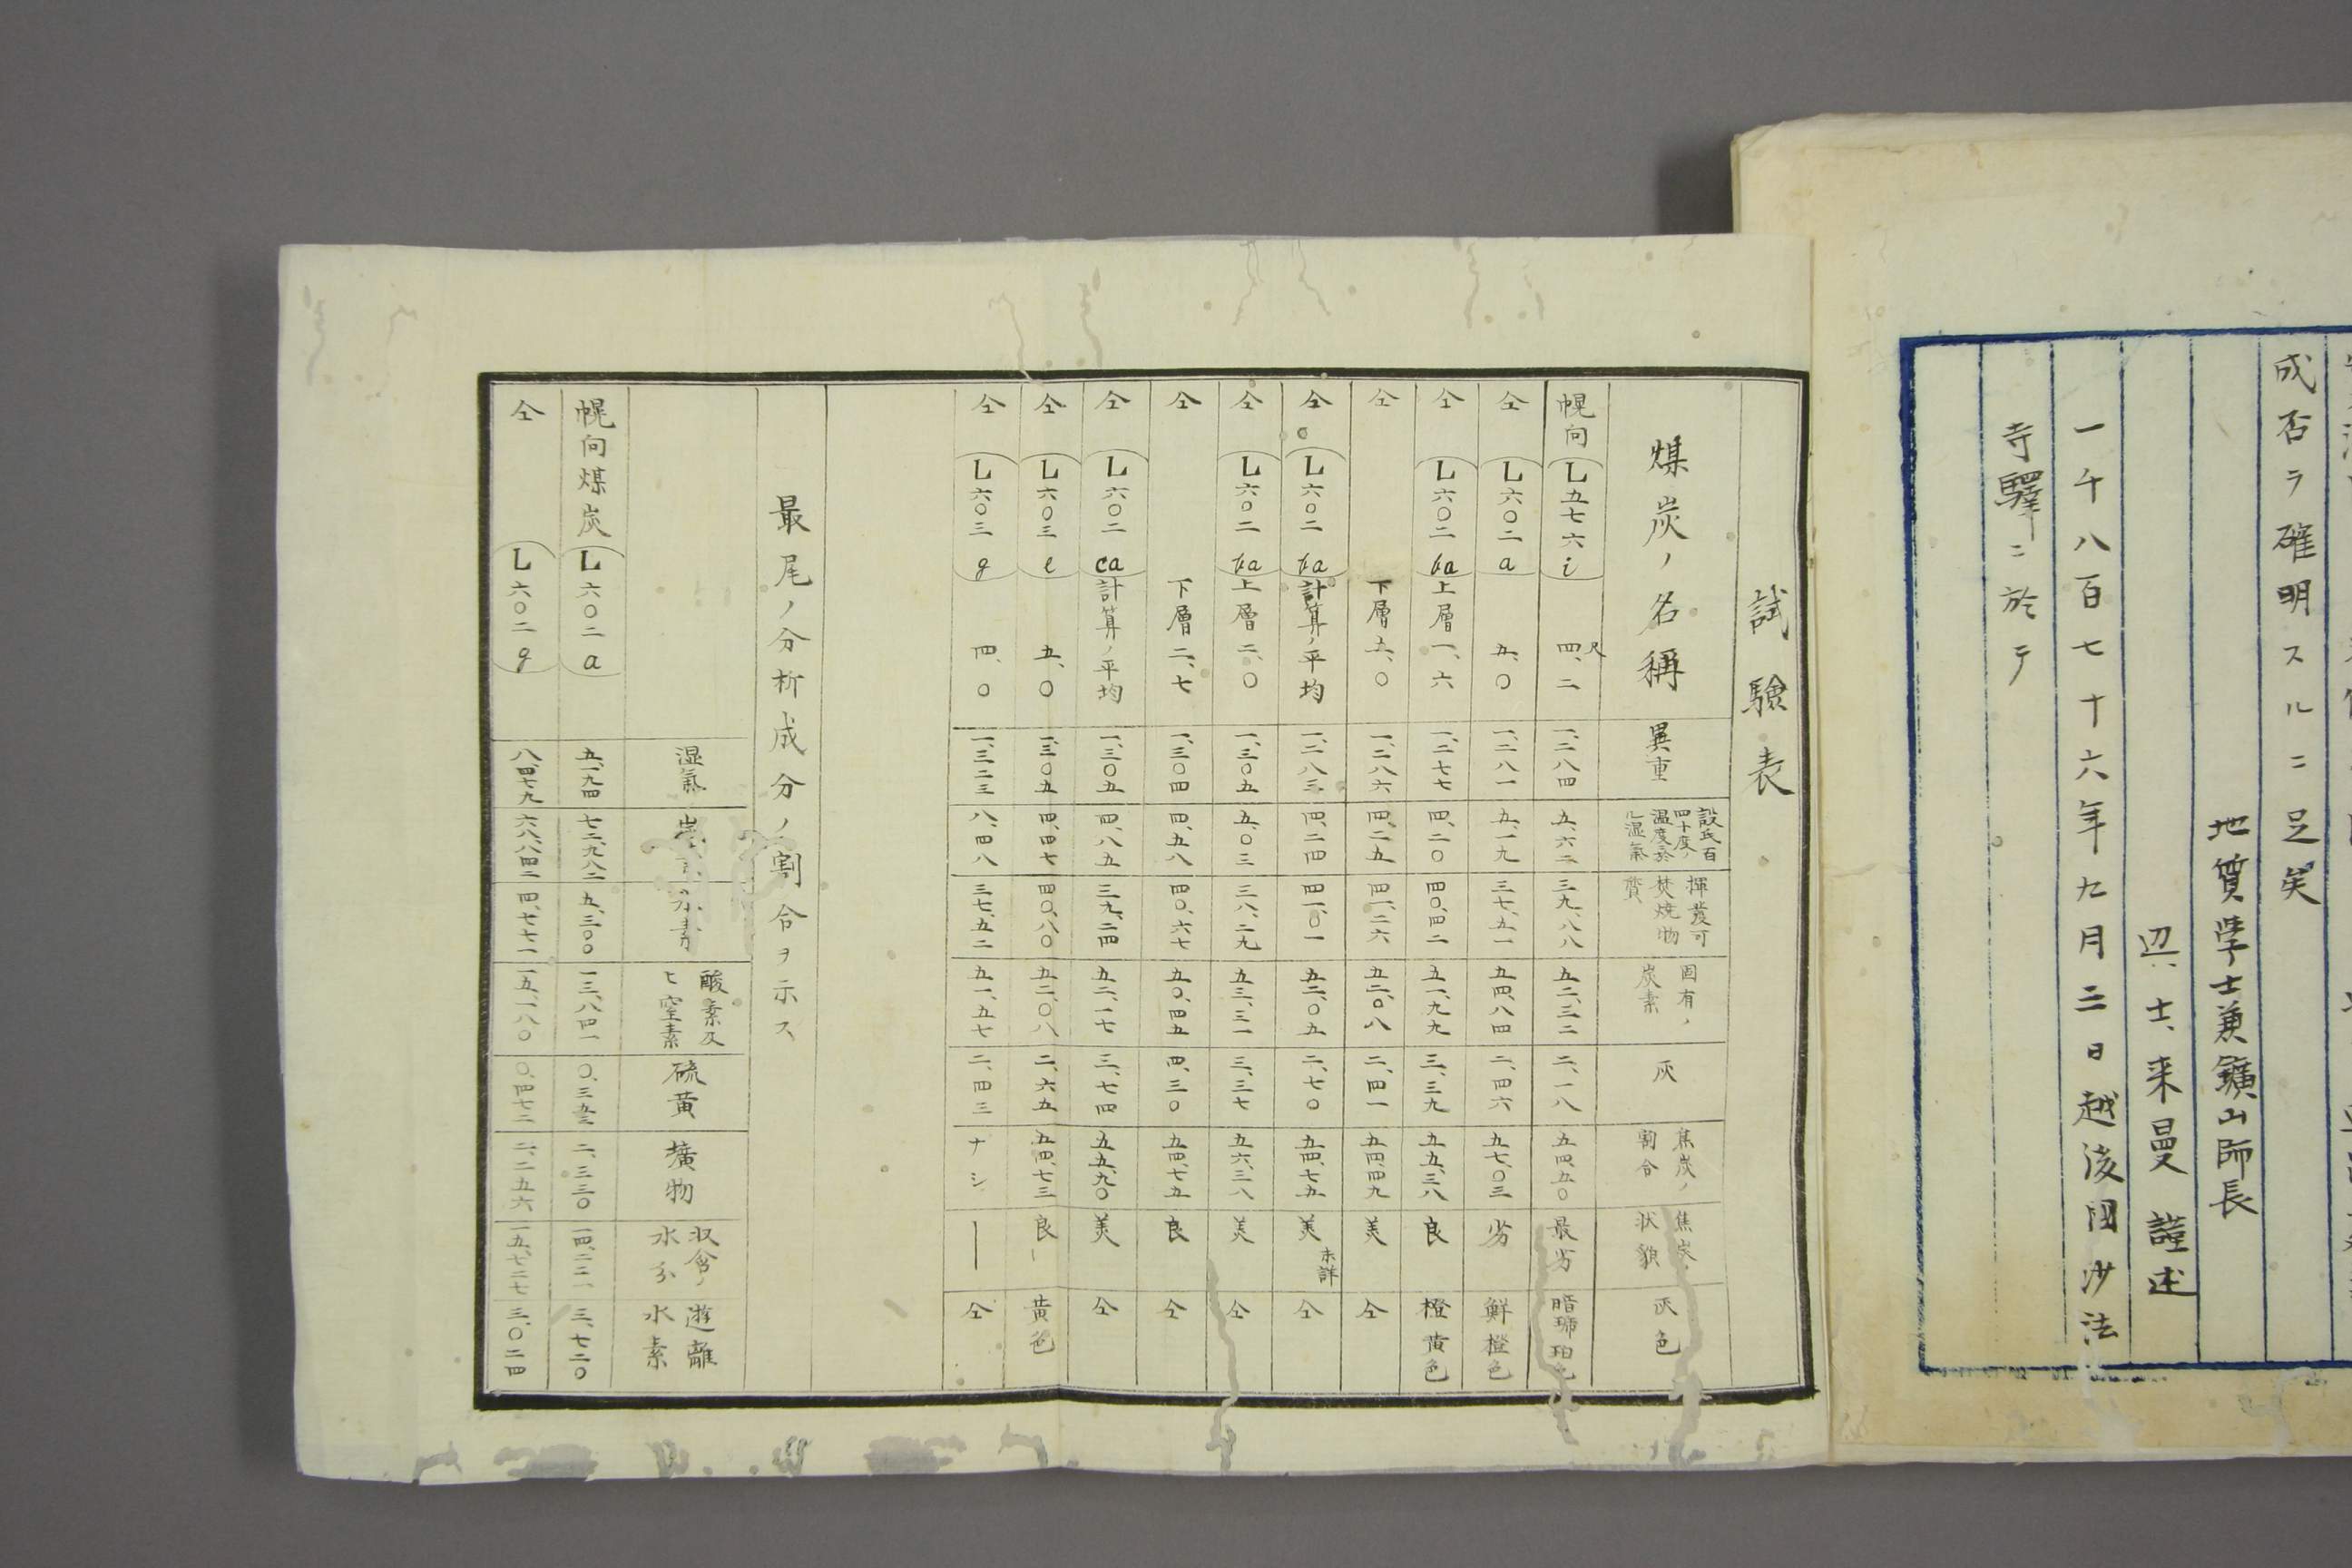 成否ヲ確明スルニ足矣
地質学士兼鑛山師長
辺、士、来曼 謹述
一千八百七十六年九月三日越後国沙法
寺驛ニ於テ
試驗表
煤炭ノ名稱 異重 設氏百四十度ノ温度蒸ル湿氣 揮發可焚焼物質 固有ノ炭素 灰 焦炭ノ割合 焦炭ノ状貌 灰色
幌向 L五七六i 四、二尺 一、二八四 五、六二 三九、八八 五二、三二 二、一八 五四、五〇 最劣 暗琭珀色
仝 L六〇二a 五、〇 一、二八一 五、一九 三七、五一 五四、八四 二、四六 五七、〇三 劣 鮮橙色
仝 L六〇二ba 上層一、六 一、二七七 四、二〇 四〇、四二 五一、九九 三、三九 五五、三八 良 橙黄色
仝 下層五、〇 一、二八六 四、二五 四一、二六 五二、〇八 二、四一 五四、四九 美 仝
仝 L六〇二ba 計算ノ平均 一、二八三 四、二四 四一、〇一 五二、〇五 二、七〇 五四、七五 美 未詳 仝
仝 L六〇二ba 上層二、〇 一、三〇五 五、〇三 三八、二九 五三、三一 三、三七 五六、三八 美 仝
仝 下層二、七 一、三〇四 四、五八 四〇、六七 五〇、四五 四、三〇 五四、七五 良 仝
仝 L六〇二ca 計算ノ平均 一、三〇五 四、八五 三九、二四 五二、一七 三、七四 五五、九〇 美 仝
仝 L六〇三e 五、〇 一、三〇五 四、四七 四〇、八〇 五二、〇八 二、六五 五四、七三 良 黄色
仝 L六〇三g 四、〇 一、三二三 八、四八 三七、五二 五一、五七 二、四三 ナシ ― 仝
最尾ノ分析成分ノ割合ヲ示ス
湿氣 炭素 水素 酸素及ヒ窒素 硫黄 壙物 収含ノ水分 遊離水素
幌向煤炭 L六〇二a 五、一九四 七二、九八二 五、三〇〇 一三、八四一 〇、三五三 二、三三〇 一四、二二一 三、七二〇
仝 L六〇二g 八、四七九 六八、八四二 四、七七一 一五、一八〇 〇、四七二 二、二五六 一五、七二七 三、〇二四